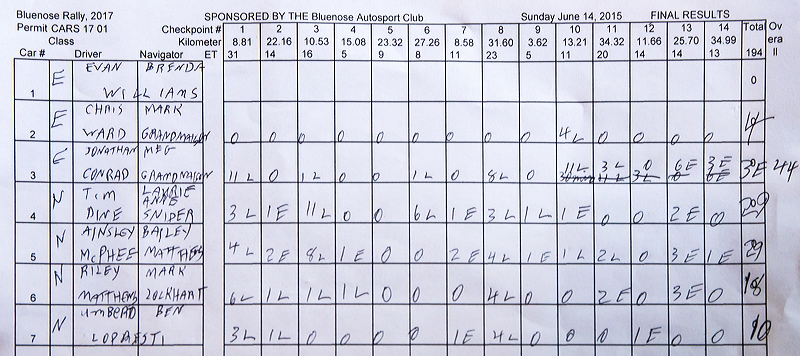 Bluenose Rally, 2017 SPONSORED BY THE Bluenose Autosport Club Sunday June 14, 2015 FINAL RESULTS
Permit CARS 17 01 Checkpoint # 1 2 3 4 5 6 7 8 9 10 11 12 13 14 Total Ov
Class Kilometer 8.81 22.16 10.53 15.08 23.32 27.26 8.58 31.60 3.62 13.21 34.32 11.66 25.70 34.99 era
Car # Driver Navigator ET 31 14 16 5 9 8 11 23 5 11 20 14 14 13 194 ll
E EVAN BRENDA
1 WILLIAMS 0
E CHRIS MARK
2 WARD GRANDMAISON 0 0 0 0 0 0 0 0 0 4L 0 0 0 0 4
E JONATHAN MEG 11L 3L 0 6E 3E
3 CONRAD GRANDMAISON 11L 0 1L 0 0 1L 0 8L 0 44
N TIM LAURIE
ANNE
4 DINE SNIDER 3L 1E 11L 0 0 6L 1E 3L 1L 1E 0 0 2E 0
N AINSLEY BAILEY
5 MCPHEE MATTHEWS 4L 2E 8L 1E 0 0 2E 4L 1E 1L 2L 0 3E 1E 29
N RILEY MARK
6 MATTHEWS LOCKHART 6L 1L 1L 1L 0 0 0 4L 0 0 2E 0 3E 0 18
N UMBERTO BEN
7 LOPRESTI 3L 1L 0 0 0 0 1E 4L 0 0 0 1E 0 0 10